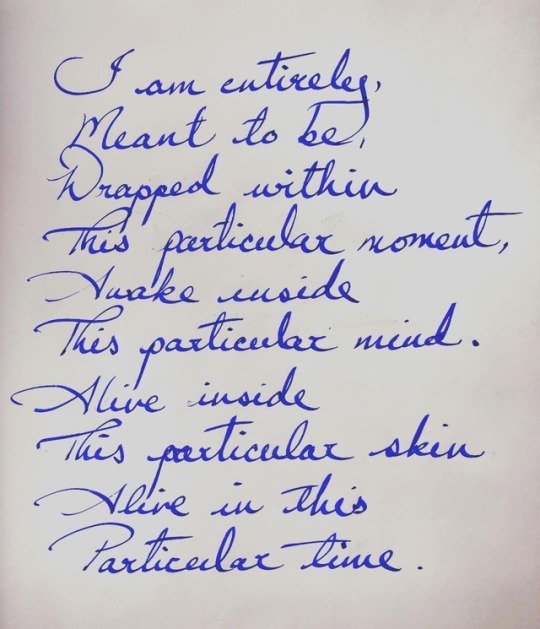 I am entirely,
Meant to be,
Wrapped within
This particular moment,
Awake inside
This particular mind.
Alive inside
This particular skin
Alive in this
Particular time.